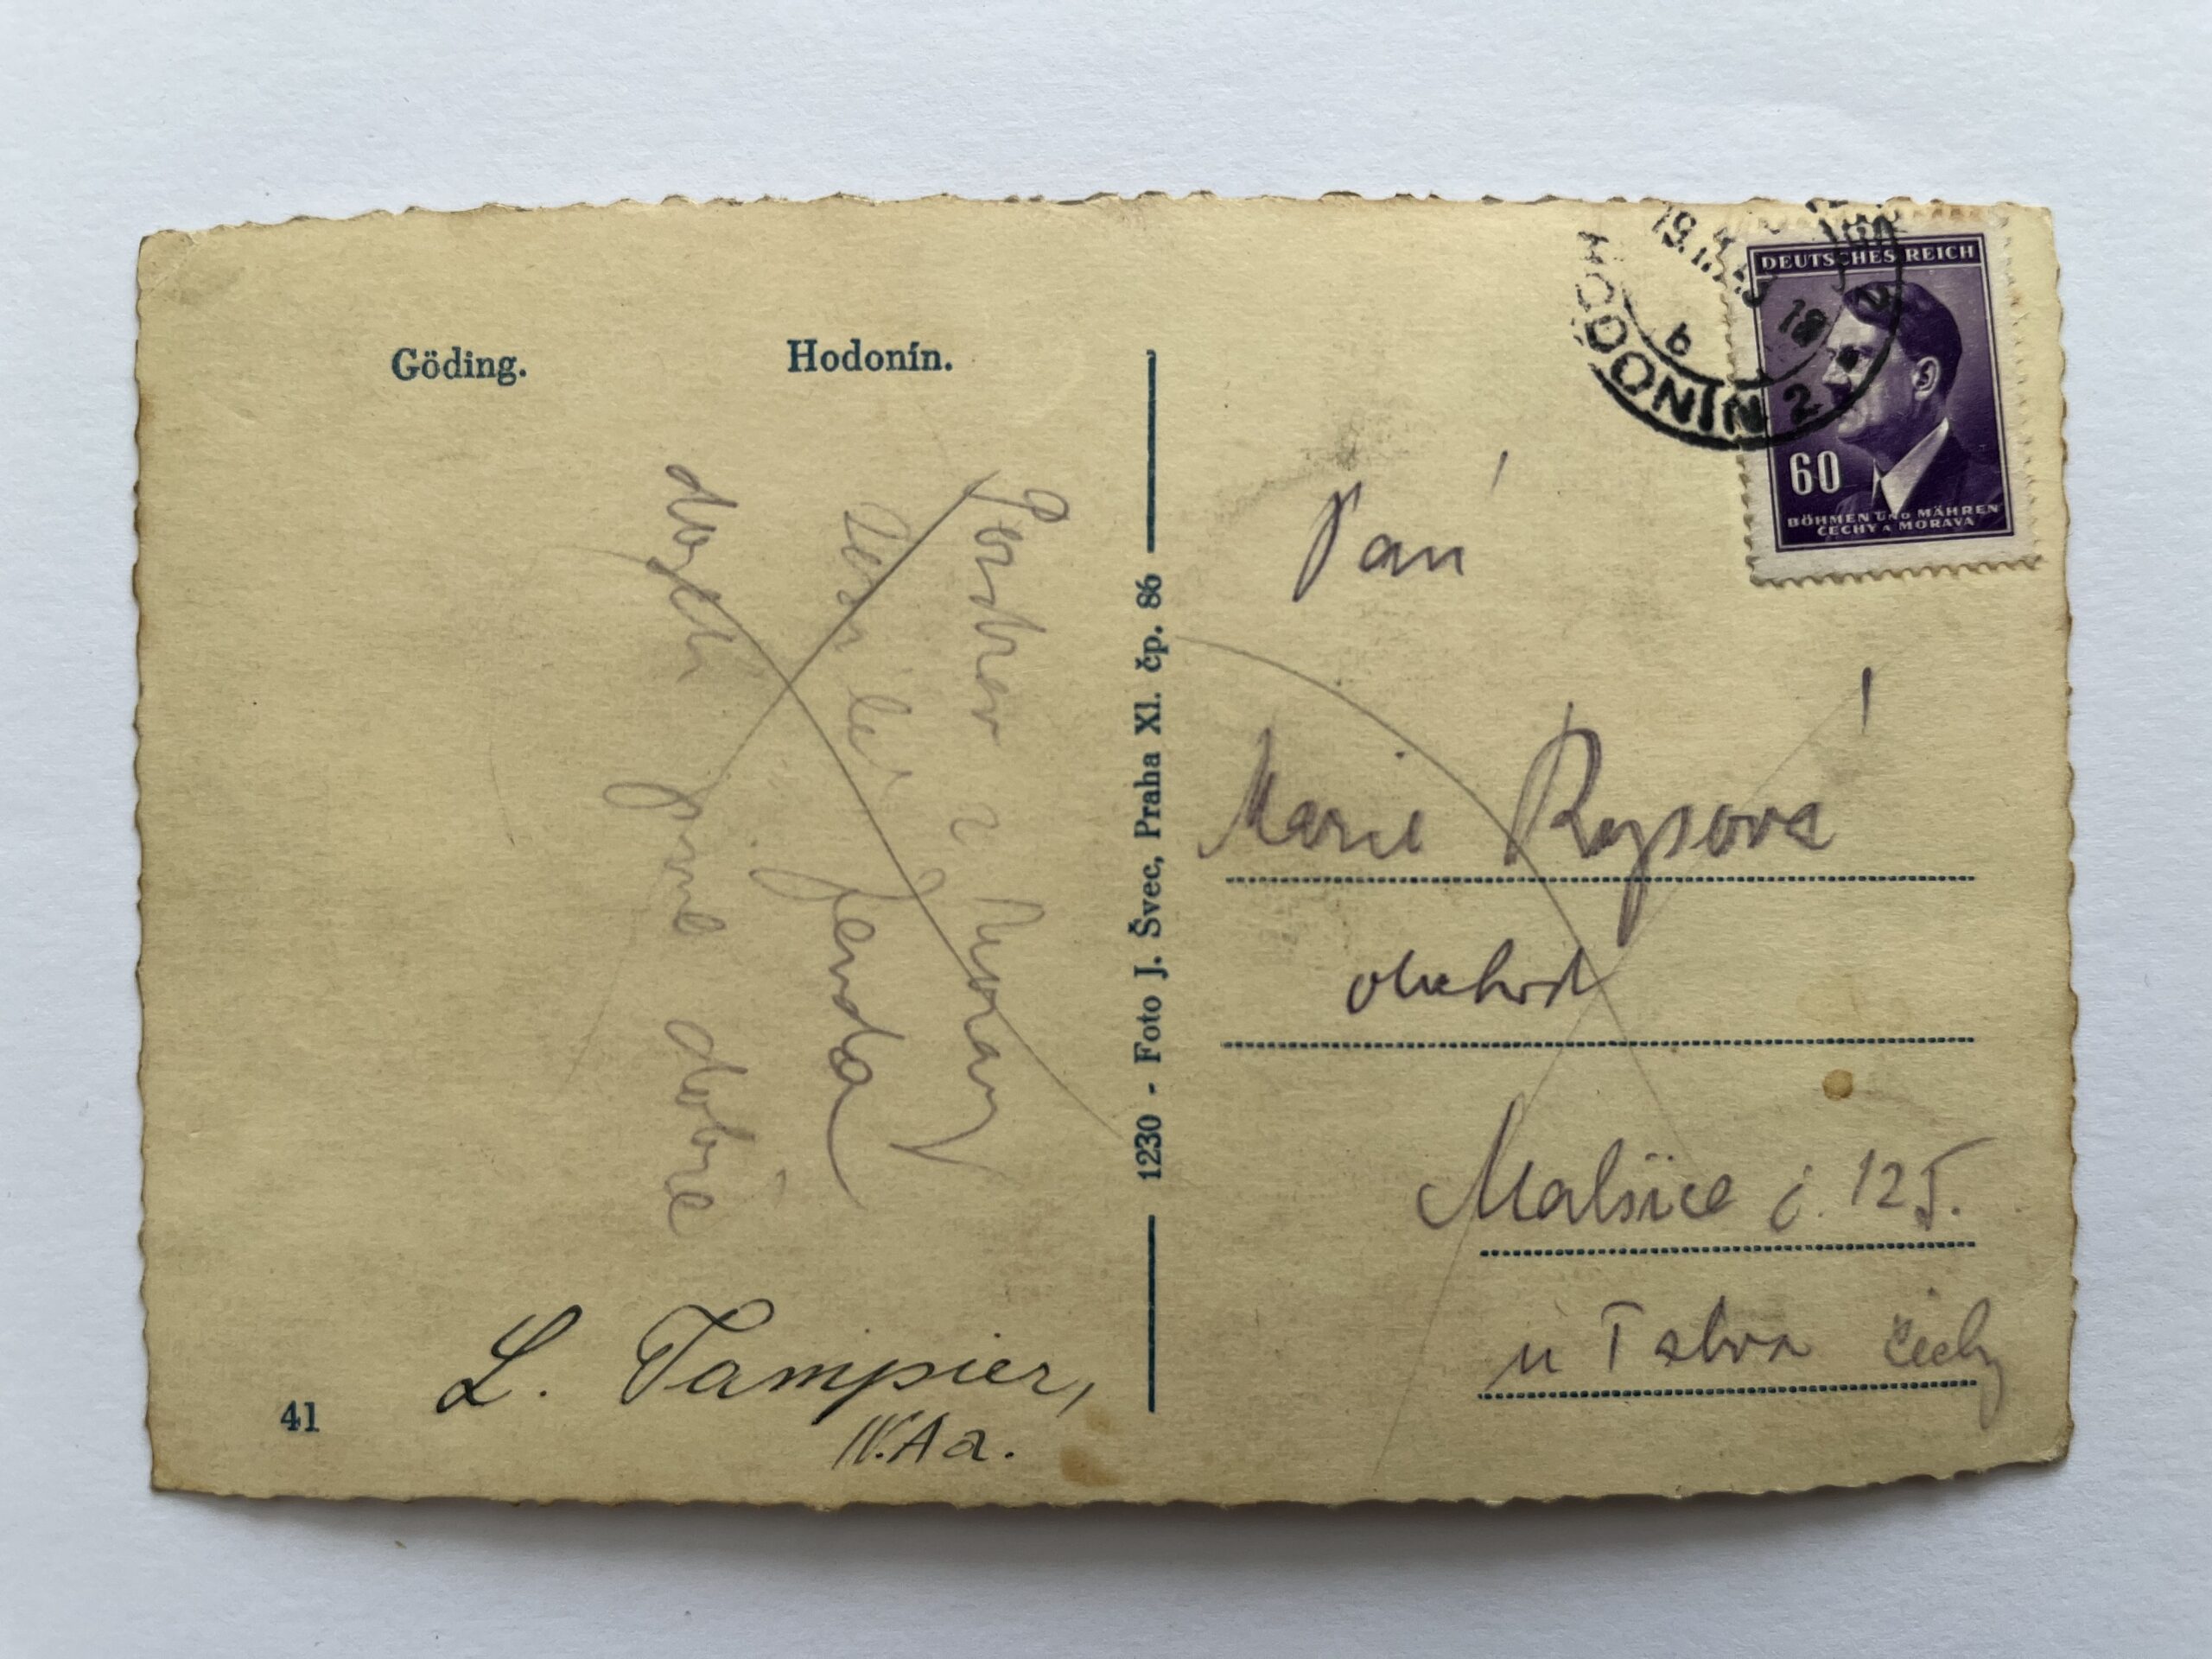 Göding. Hodonín.
Pozdrav z Moravy
Jenda
dojeli jsme dobře
L. Tampier,
IV.A a.
41
1230 - Foto J. Švec, Praha XI. čp. 86
HODONÍN 2
b
DEUTSCHES REICH
60
BÖHMEN UND MÄHREN
ČECHY A MORAVA
Paní
Marie Rysová
obchod
Malšice č. 125.
u Tabora Čechy